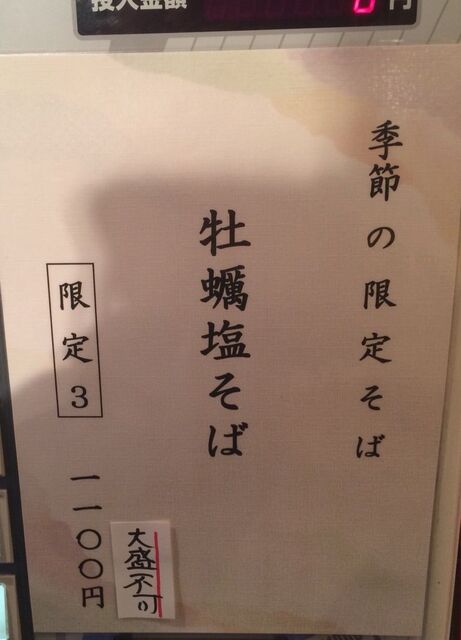 投入金額 0 円
季節の限定そば
牡蠣塩そば
限定3
一一〇〇円
大盛不可